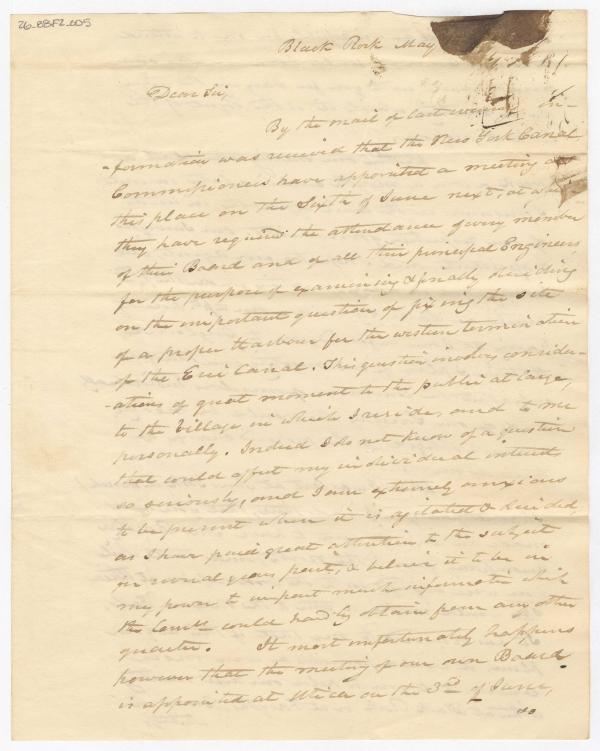 26-BBF2-005
Black Rock May
Dear Sir,
By the mail of last in-
-formation was received that the New York Canal
Commissioners have appointed a meeting at
this place on the Sixth of June next, at
they have required the attendance of every member
of their Board and of all their principal Engineers
for the purpose of examining & finally deciding
on the important question of fixing the site
of a proper Harbour for the western termination
of the Erie Canal. This question involves consider-
-ations of great moment to the public at large,
to the Village in which I reside, and to me
personally. Indeed I do not know of a question
that could affect my individual interests
so seriously, and I am extremely anxious
to be present when it is agitated & decided,
as I have paid great attention to the subject
for several years past, & believe it to be in
my power to impart much information which
the Comrs could hardly obtain from any other
quarter. It most unfortunately happens
however that the meeting of our own Board
is appointed at Utica on the 3rd of June,
so